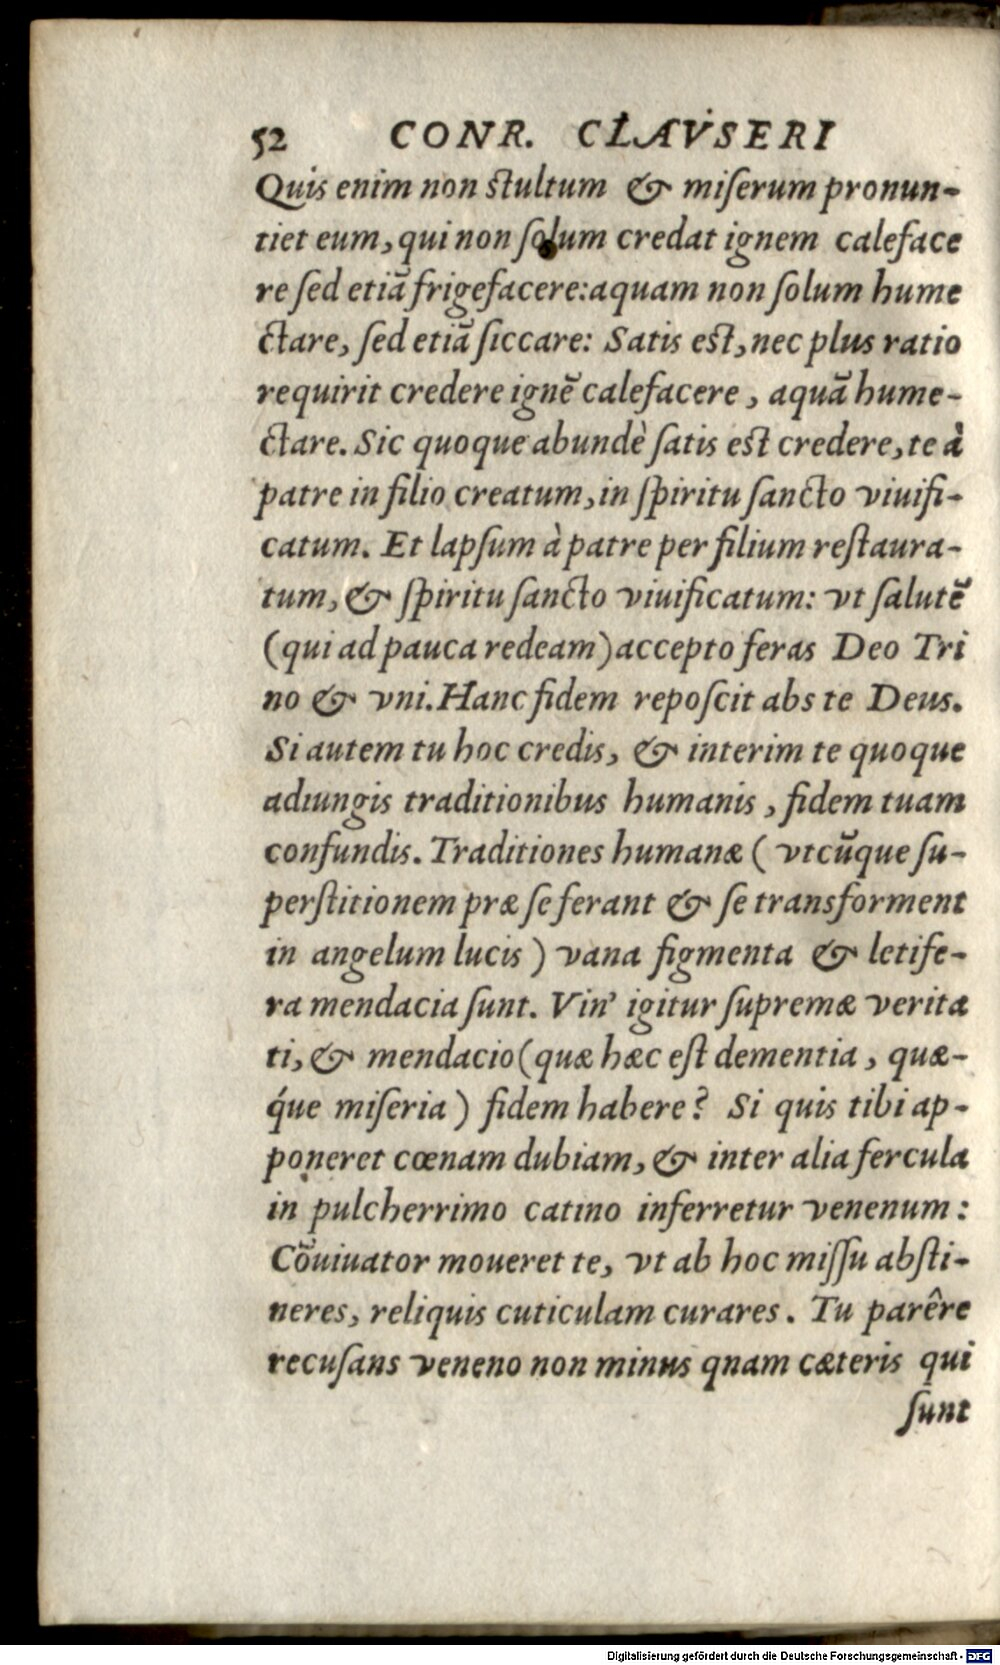 52 CONR. CLAVSERI
Quis enim non stultum & miſerum pronun-
tiet eum, qui non ſolum credat ignem caleface
re ſed etiā frigefacere: aquam non ſolum hume
ctare, ſed etiā ſiccare: Satis est, nec plus ratio
requirit credere ignē calefacere, aquā hume-
ctare. Sic quoque abundè ſatis est credere, te à
patre in filio creatum, in ſpiritu ſancto viuifi-
catum. Et lapſum à patre per filium reſtaura-
tum, & ſpiritu ſancto viuificatum: vt ſalutē
(qui ad pauca redeam) accepto feras Deo Tri
no & vni. Hanc fidem repoſcit abs te Deus.
Si autem tu hoc credis, & interim te quoque
adiungis traditionibus humanis, fidem tuam
confundis. Traditiones humanæ (vtcūque ſu-
perſtitionem præ ſe ferant & ſe transforment
in angelum lucis) vana figmenta & letife-
ra mendacia ſunt. Vin' igitur ſupremæ verita
ti, & mendacio (quæ hæc eſt dementia, quæ-
q́ue miſeria) fidem habere? Si quis tibi ap-
poneret cœnam dubiam, & inter alia fercula
in pulcherrimo catino inferretur venenum:
Cōuiuator moueret te, vt ab hoc miſſu abſti-
neres, reliquis cuticulam curares. Tu parêre
recuſans veneno non minus qnam cæteris qui
ſunt
Digitalisierung gefördert durch die Deutsche Forschungsgemeinschaft - DFG